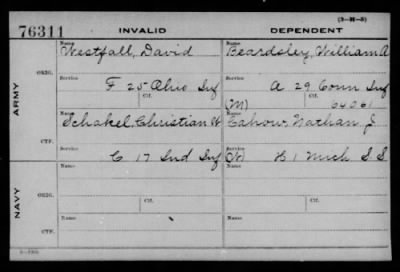 (3-H-5)
76311 INVALID DEPENDENT
Name Name
Westfall, David Beardsley, William A
ARMY
ORIG.
Service Ctf. Service Ctf.
F 25 Ohio Inf A 29 Conn Inf
(M) 64061
Name Name
Schakel, Christian W Cahow, Nathan J.
CTF.
Service Service
C 17 Ind Inf (W) H 1 Mich S S
NAVY
Name Name
ORIG.
Service Ctf. Service Ctf.
Name Name
CTF.
Service Service